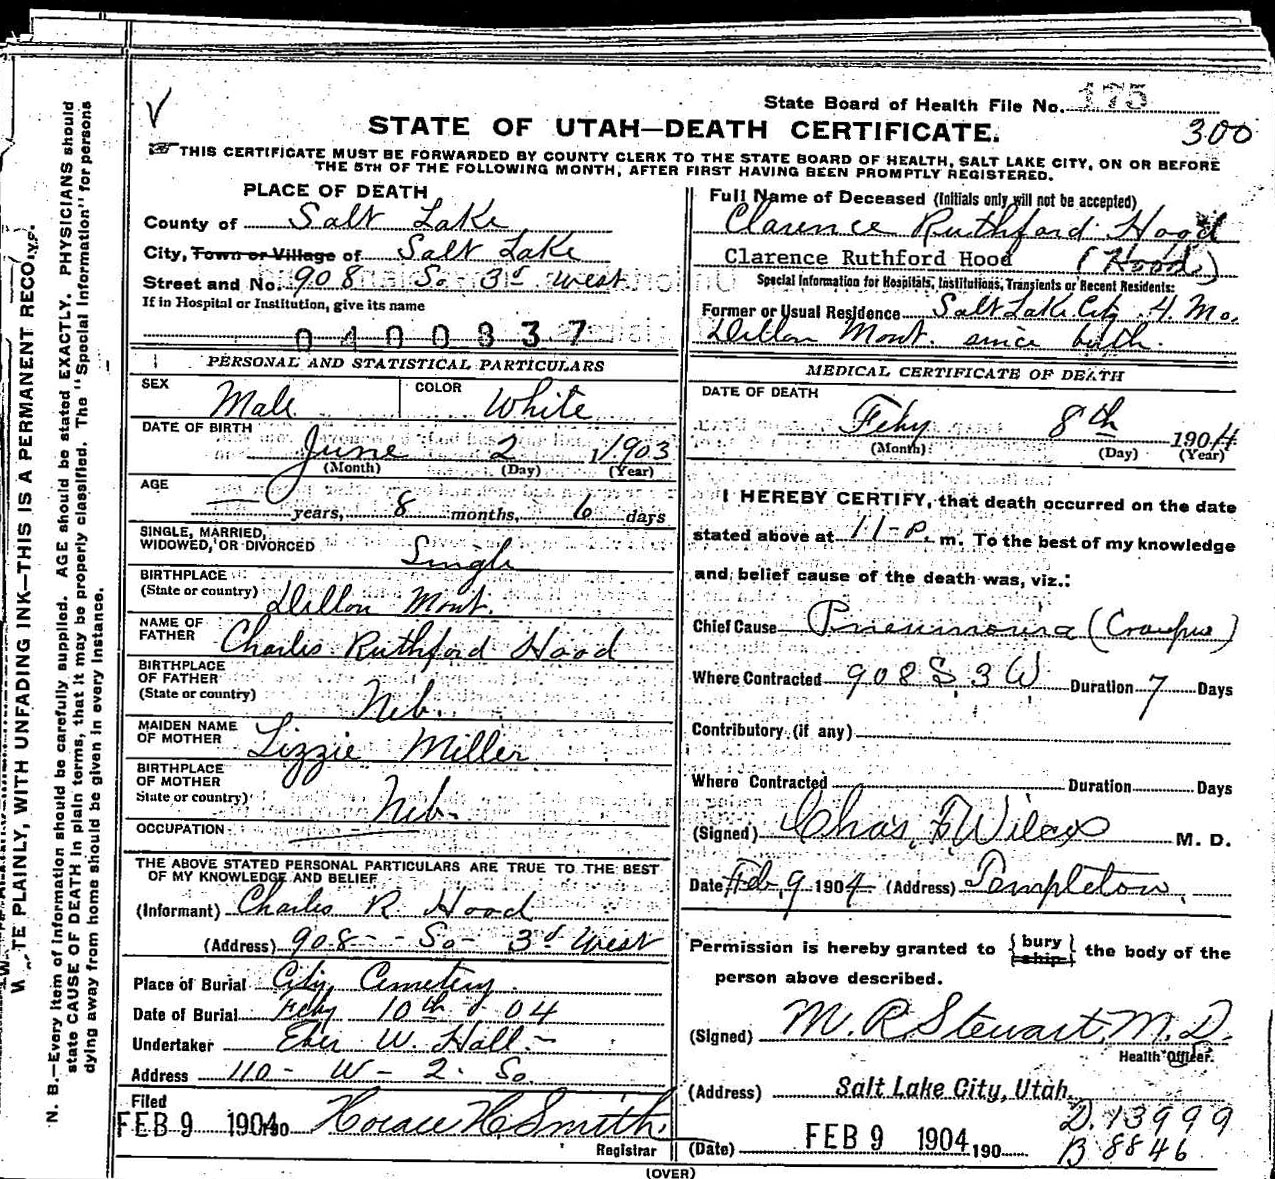 State Board of Health File No. 175
300
STATE OF UTAH—DEATH CERTIFICATE.
THIS CERTIFICATE MUST BE FORWARDED BY COUNTY CLERK TO THE STATE BOARD OF HEALTH, SALT LAKE CITY, ON OR BEFORE
THE 5TH OF THE FOLLOWING MONTH, AFTER FIRST HAVING BEEN PROMPTLY REGISTERED.
PLACE OF DEATH
County of Salt Lake
City, Town or Village of Salt Lake
Street and No. 908 So. 3rd West
If in Hospital or Institution, give its name
0400837
PERSONAL AND STATISTICAL PARTICULARS
SEX Male COLOR White
DATE OF BIRTH
June 2 1903
(Month) (Day) (Year)
AGE
— years, 8 months, 6 days
SINGLE, MARRIED,
WIDOWED, OR DIVORCED Single
BIRTHPLACE
(State or country) Dillon Mont.
NAME OF
FATHER Charles Ruthford Hood
BIRTHPLACE
OF FATHER
(State or country) Neb.
MAIDEN NAME
OF MOTHER Lizzie Miller
BIRTHPLACE
OF MOTHER
State or country) Neb.
OCCUPATION
THE ABOVE STATED PERSONAL PARTICULARS ARE TRUE TO THE BEST
OF MY KNOWLEDGE AND BELIEF
(Informant) Charles R. Hood
(Address) 908 - - So - 3rd West
Place of Burial City Cemetery
Date of Burial Feby 10th 04
Undertaker Eber W. Hall
Address 110 - W - 2 - So
Filed
FEB 9 1904 190
Horace H. Smith
Registrar
Full Name of Deceased (Initials only will not be accepted)
Clarence Ruthford Hood
Clarence Ruthford Hood (Hood)
Special Information for Hospitals, Institutions, Transients or Recent Residents:
Former or Usual Residence Salt Lake City 4 Mo.
Dillon Mont. since birth.
MEDICAL CERTIFICATE OF DEATH
DATE OF DEATH
Feby 8th 1904
(Month) (Day) (Year)
I HEREBY CERTIFY, that death occurred on the date
stated above at 11-P. m. To the best of my knowledge
and belief cause of the death was, viz.:
Chief Cause Pneumonia (Croupus)
Where Contracted 908 S. 3 W Duration 7 Days
Contributory (if any)
Where Contracted Duration Days
(Signed) Chas. F Wilcox M. D.
Date Feb 9 1904 (Address) Templeton
Permission is hereby granted to {bury ship} the body of the
person above described.
(Signed) M. R. Stewart, M. D.
Health Officer.
(Address) Salt Lake City, Utah.
D. 13999
B 8846
(Date) FEB 9 1904 190
(OVER)
TE PLAINLY, WITH UNFADING INK—THIS IS A PERMANENT RECO
N. B.—Every item of information should be carefully supplied. AGE should be stated EXACTLY. PHYSICIANS should
state CAUSE OF DEATH in plain terms, that it may be properly classified. The "Special Information" for persons
dying away from home should be given in every instance.